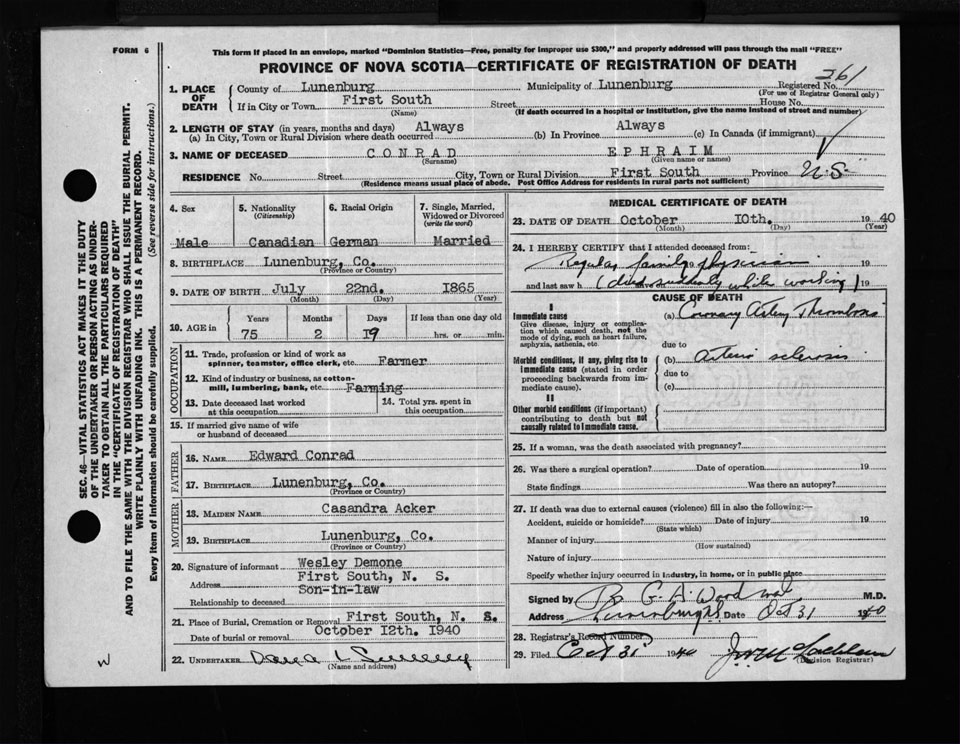 FORM 6
This form if placed in an envelope, marked "Dominion Statistics—Free, penalty for improper use $300," and properly addressed will pass through the mail "FREE"
PROVINCE OF NOVA SCOTIA—CERTIFICATE OF REGISTRATION OF DEATH
SEC. 46—VITAL STATISTICS ACT MAKES IT THE DUTY
OF THE UNDERTAKER OR PERSON ACTING AS UNDER-
TAKER TO OBTAIN ALL THE PARTICULARS REQUIRED
IN THE "CERTIFICATE OF REGISTRATION OF DEATH"
AND TO FILE THE SAME WITH THE DIVISION REGISTRAR WHO SHALL ISSUE THE BURIAL PERMIT.
WRITE PLAINLY WITH UNFADING INK. THIS IS A PERMANENT RECORD.
Every item of information should be carefully supplied. (See reverse side for instructions.)
1. PLACE OF DEATH
County of Lunenburg Municipality of Lunenburg Registered No. 361
(For use of Registrar General only)
If in City or Town First South Street House No.
(Name) (If death occurred in a hospital or institution, give the name instead of street and number)
2. LENGTH OF STAY (in years, months and days)
(a) In City, Town or Rural Division where death occurred Always (b) In Province Always (c) In Canada (if immigrant)
3. NAME OF DECEASED CONRAD EPHRAIM
(Surname) (Given name or names)
RESIDENCE No. Street City, Town or Rural Division First South Province N.S.
(Residence means usual place of abode. Post Office Address for residents in rural parts not sufficient)
4. Sex Male
5. Nationality (Citizenship) Canadian
6. Racial Origin German
7. Single, Married, Widowed or Divorced (write the word) Married
8. BIRTHPLACE Lunenburg, Co.
(Province or Country)
9. DATE OF BIRTH July 22nd. 1865
(Month) (Day) (Year)
10. AGE in Years Months Days If less than one day old
75 2 19 hrs. or min.
OCCUPATION
11. Trade, profession or kind of work as spinner, teamster, office clerk, etc. Farmer
12. Kind of industry or business, as cotton-mill, lumbering, bank, etc. Farming
13. Date deceased last worked at this occupation
14. Total yrs. spent in this occupation
15. If married give name of wife or husband of deceased
FATHER
16. NAME Edward Conrad
17. BIRTHPLACE Lunenburg, Co.
(Province or Country)
MOTHER
18. MAIDEN NAME Casandra Acker
19. BIRTHPLACE Lunenburg, Co.
(Province or Country)
20. Signature of informant Wesley Demone
Address First South, N. S.
Relationship to deceased Son-in-law
21. Place of Burial, Cremation or Removal First South, N. S.
Date of burial or removal October 12th. 1940
22. UNDERTAKER
(Name and address)
W
MEDICAL CERTIFICATE OF DEATH
23. DATE OF DEATH October 10th. 1940
(Month) (Day) (Year)
24. I HEREBY CERTIFY that I attended deceased from:
Regular family physician 19
and last saw h (died suddenly while working) 19
CAUSE OF DEATH
I
Immediate cause
Give disease, injury or complication which caused death, not the mode of dying, such as heart failure, asphyxia, asthenia, etc.
(a) Coronary Artery Thrombosis
due to
Morbid conditions, if any, giving rise to immediate cause (stated in order proceeding backwards from immediate cause).
(b) Arterio sclerosis
due to
(c)
II
Other morbid conditions (if important) contributing to death but not causally related to immediate cause.
25. If a woman, was the death associated with pregnancy?
26. Was there a surgical operation? Date of operation 19
State findings Was there an autopsy?
27. If death was due to external causes (violence) fill in also the following:—
Accident, suicide or homicide? Date of injury 19
(State which)
Manner of injury
(How sustained)
Nature of injury
Specify whether injury occurred in industry, in home, or in public place
Signed by R. G. A. Wood M.D.
Address Lunenburg NS Date Oct 31 1940
28. Registrar's Record Number
29. Filed Oct 31 1940
(Division Registrar)